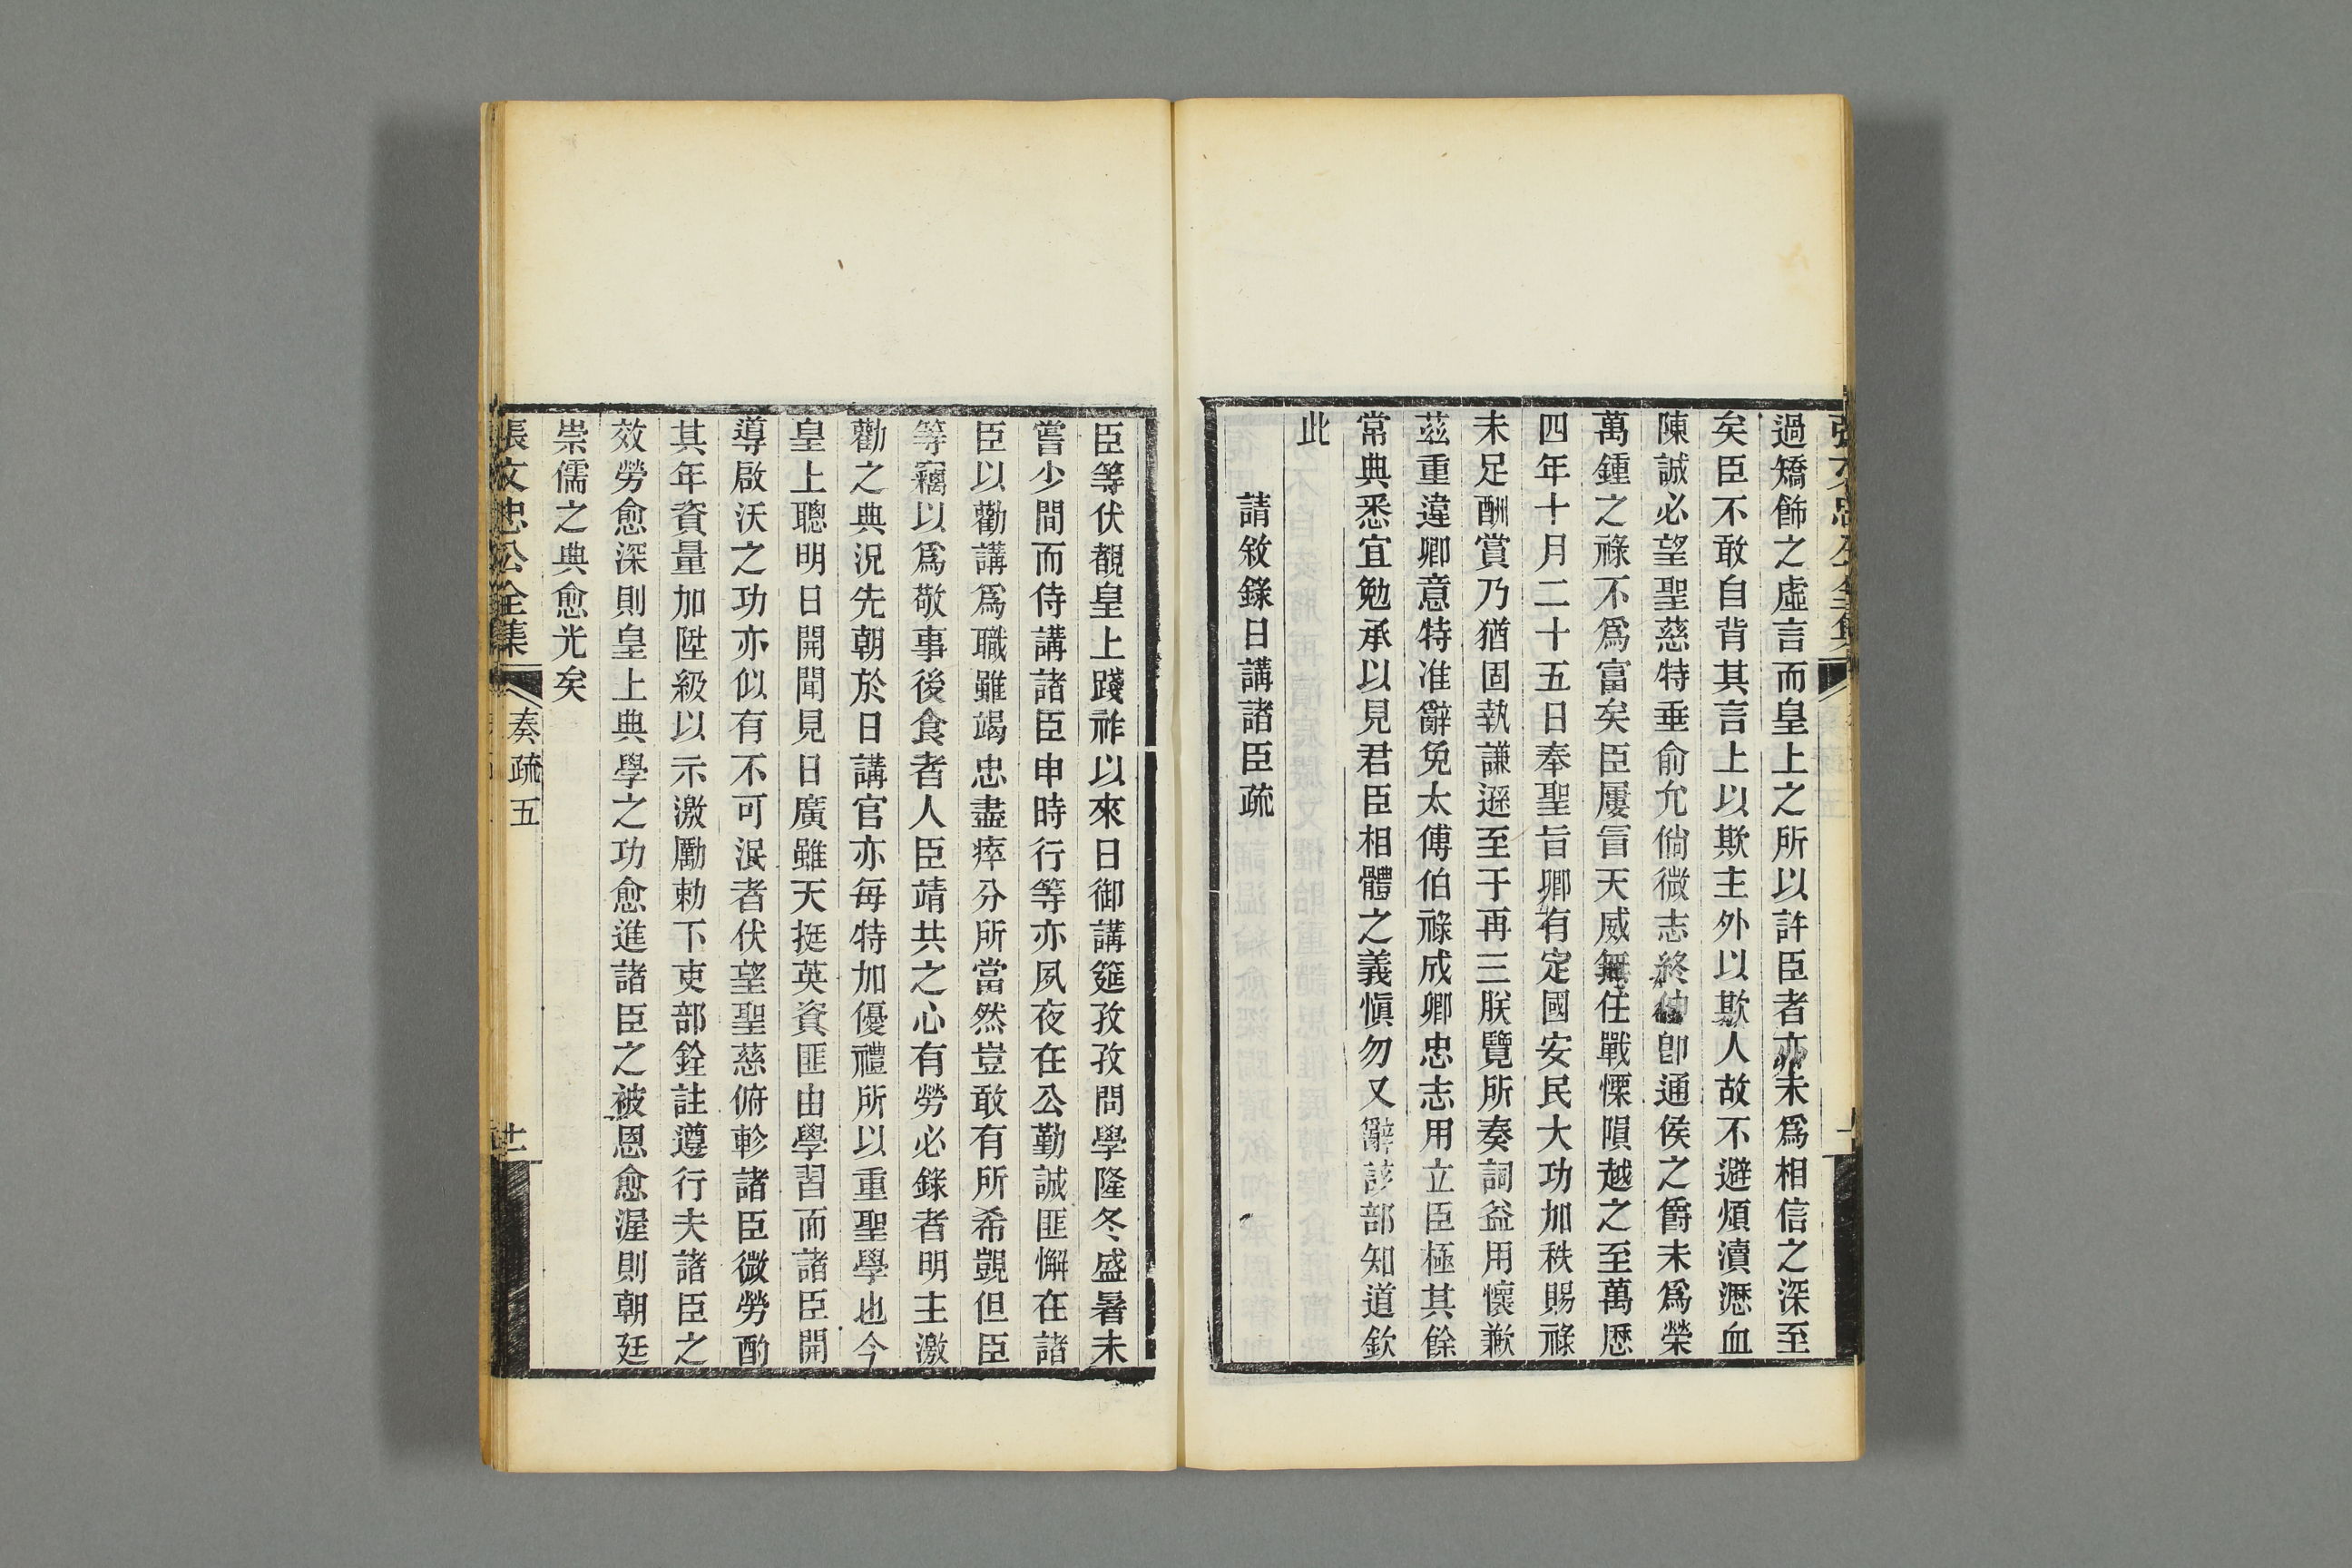 過矯飾之虛言而皇上之所以許臣者亦未爲相信之深至
矣臣不敢自背其言上以欺主外以欺人故不避煩瀆瀝血
陳誠必望聖慈特垂俞允倘微志終伸卽通侯之爵未爲榮
萬鍾之祿不爲富矣臣屢冒天威無任戰慄隕越之至萬歷
四年十月二十五日奉聖旨卿有定國安民大功加秩賜祿
未足酬賞乃猶固執謙遜至于再三朕覽所奏詞益用懷歉
茲重違卿意特准辭免太傅伯祿成卿忠志用立臣極其餘
常典悉宜勉承以見君臣相體之義愼勿又辭該部知道欽
此
請敘錄日講諸臣疏
臣等伏覩皇上踐祚以來日御講筵孜孜問學隆冬盛暑未
嘗少間而侍講諸臣申時行等亦夙夜在公勤誠匪懈在諸
臣以勸講爲職雖竭忠盡瘁分所當然豈敢有所希覬但臣
等竊以爲敬事後食者人臣靖共之心有勞必錄者明主激
勸之典況先朝於日講官亦每特加優禮所以重聖學也今
皇上聰明日開聞見日廣雖天挺英資匪由學習而諸臣開
導啟沃之功亦似有不可泯者伏望聖慈俯軫諸臣微勞酌
其年資量加陞級以示激勵勅下吏部銓註遵行夫諸臣之
效勞愈深則皇上典學之功愈進諸臣之被恩愈渥則朝廷
崇儒之典愈光矣
張文忠公全集 奏疏五 十一